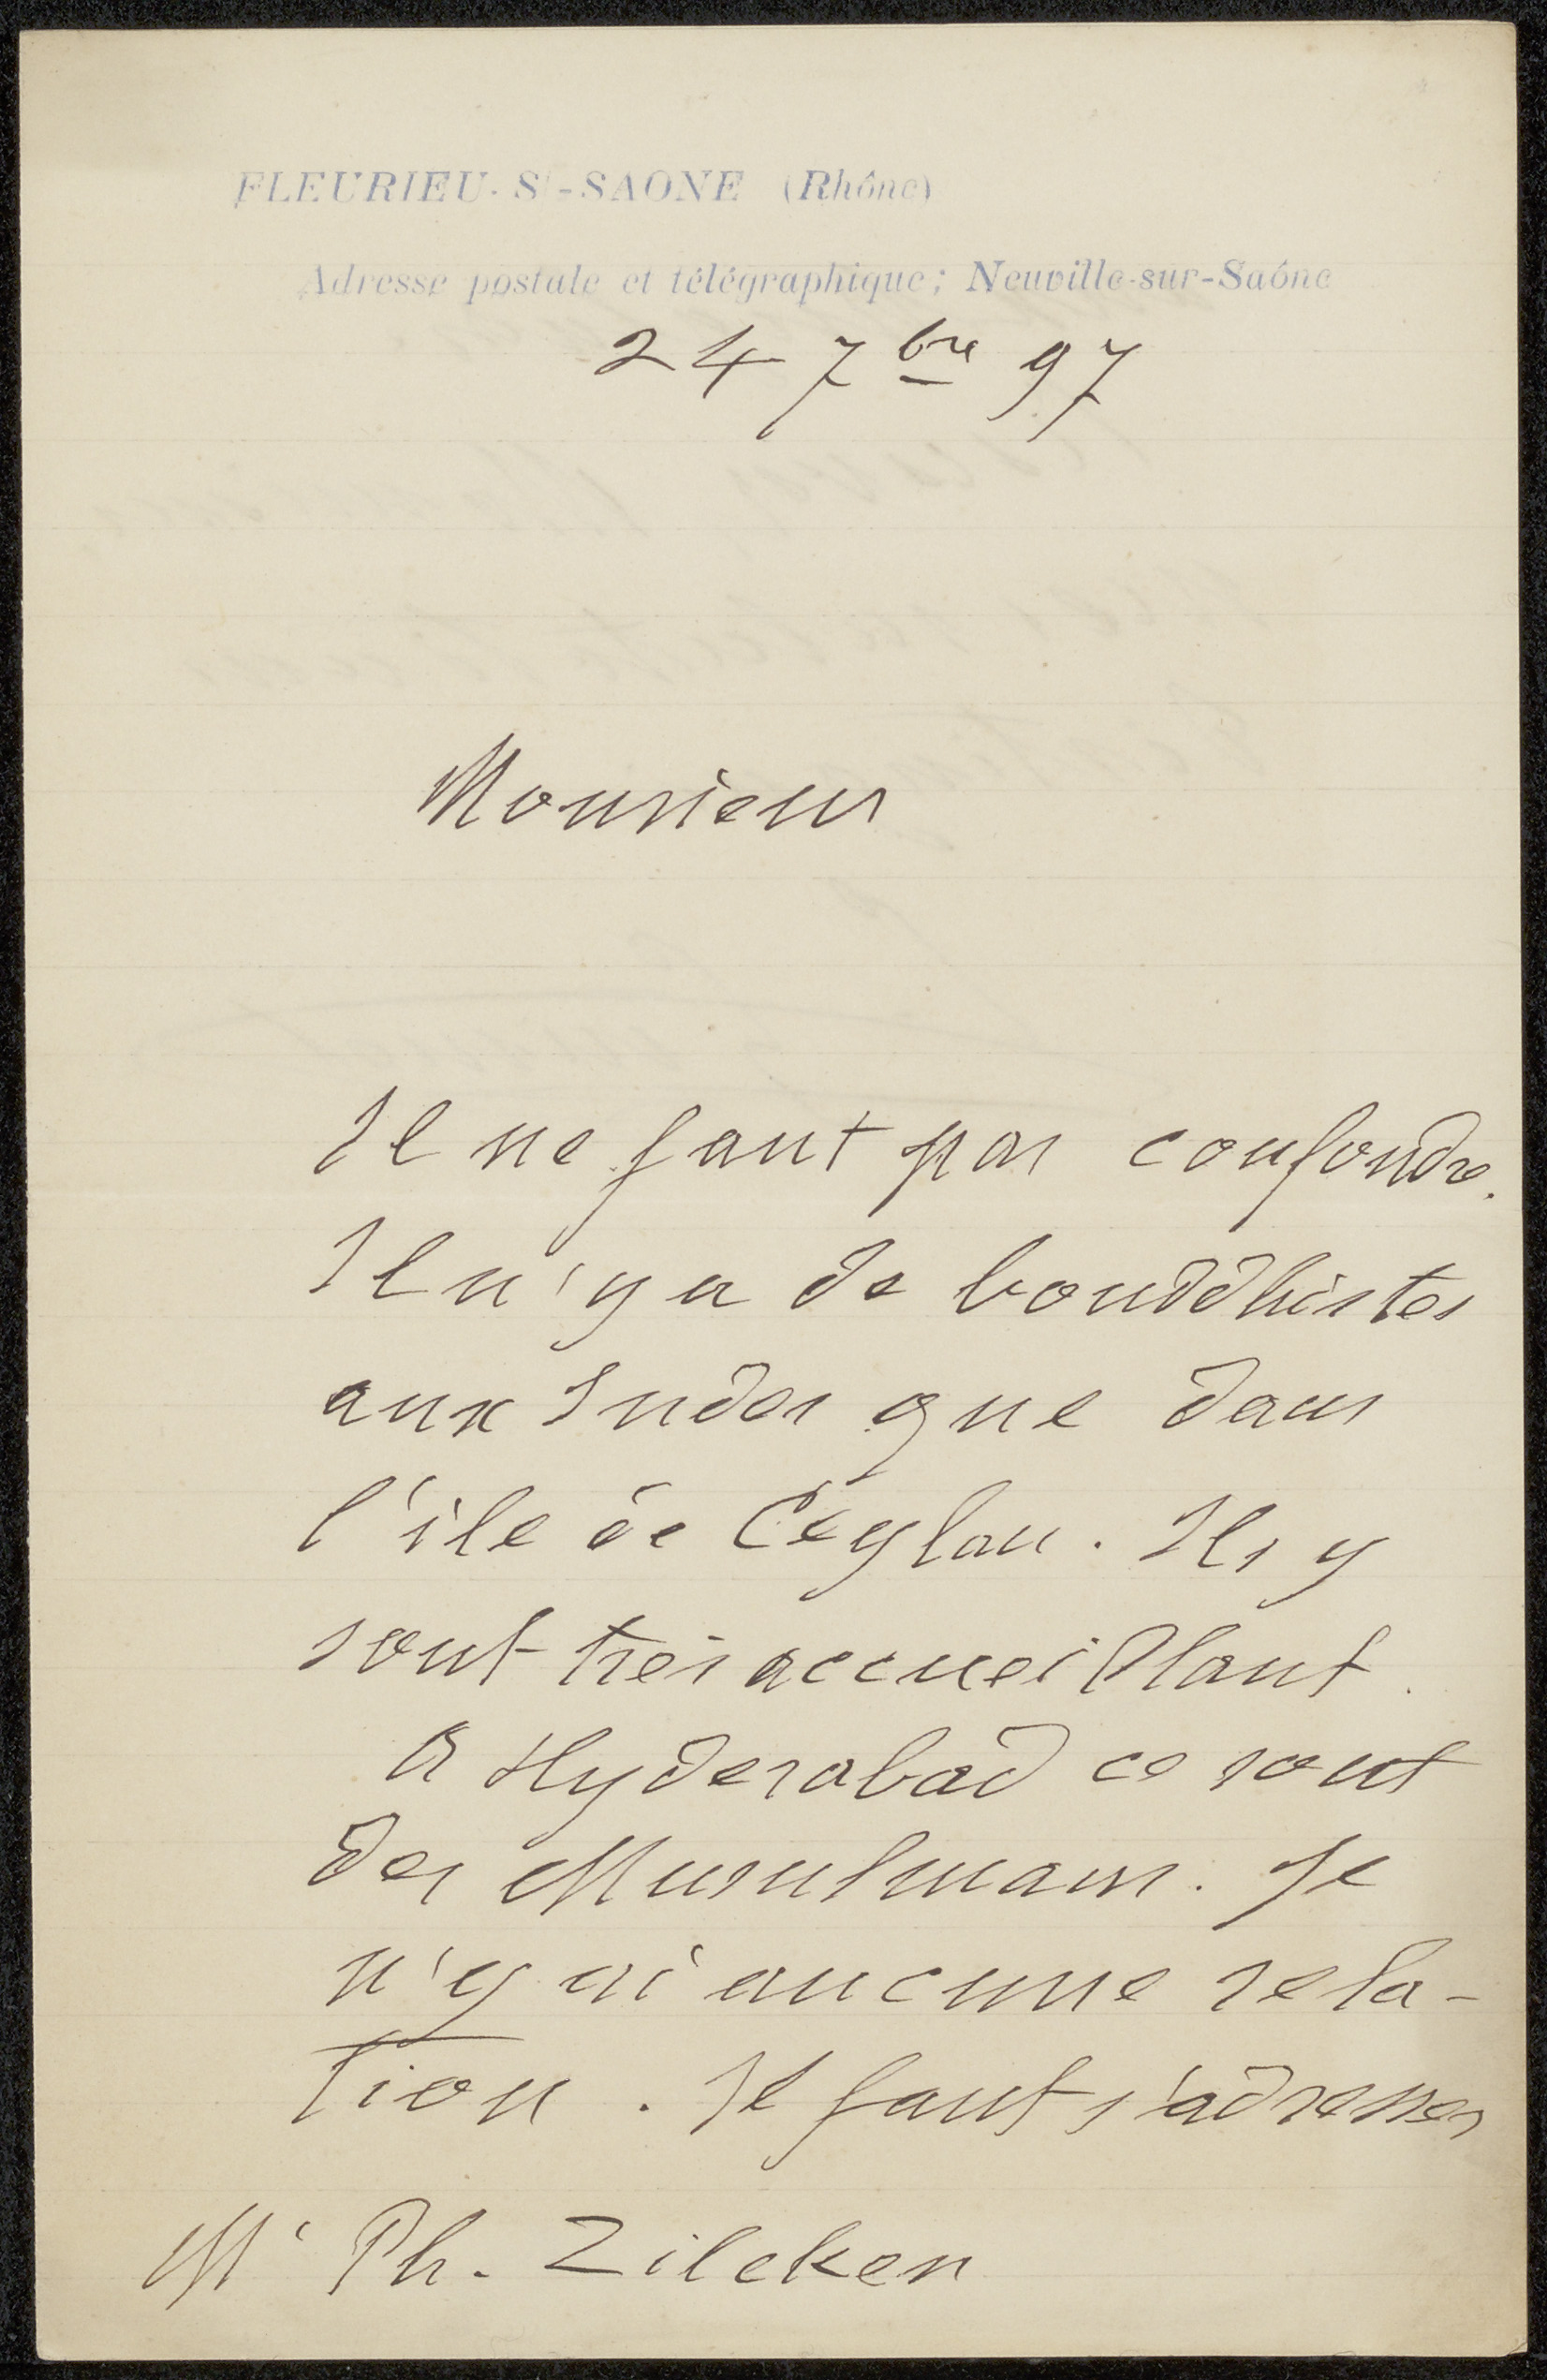 FLEURIEU-S/-SAONE (Rhône)
Adresse postale et télégraphique; Neuville-sur-Saône
24 7bre 97
Monsieur
Il ne faut pas confondre.
Il n'y a de bouddhistes
aux Indes que dans
l'ile de Ceylan. Ils y
sont très accueillant.
A Hyderabad ce sont
des Musulmans. Je
n'y ai aucune rela-
tion. Il faut s'adresser
Mr Ph. Zilcken